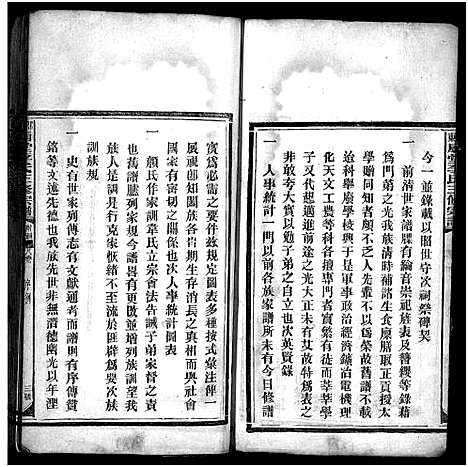 今一並錄載以昭世守次祠祭碑契
一前清世家譜牒有綸音崇祖旌表及簪纓等錄藉
爲門弟之光我族清時補諸生食廩膳取正貢捷太
學始同知者頗不乏人先輩不以爲榮故舊譜未
治科舉廢學校興于是軍事政治經濟鑛冶電機理
化天文工農等科各項專門者實繁有徒而莘莘學
子又代起邁進前途之光大正未有艾故特爲表之
非敢夸也亦以勉子弟之自立也次英賢錄
一人事統計一門以前各族家譜所未有今日修譜
實爲必需之要件茲規定圖表多種按式彙注俾一
展視卽知闔族各省戶動態之眞相而與社會
國家有密切之關係也次人事統計圖表
一顏氏作家訓韋氏立宗會法告誡子弟家督之責
也舊譜臚列家規今譜曷有更改並增列族訓望吾
族人於是訓於是行克家有子而不流于匪僻爲要次
訓族規
一史有世家列傳志有文獻通考而于詩有序傳贊
銘等文述先德也我族先世非無潛德幽光以年湮